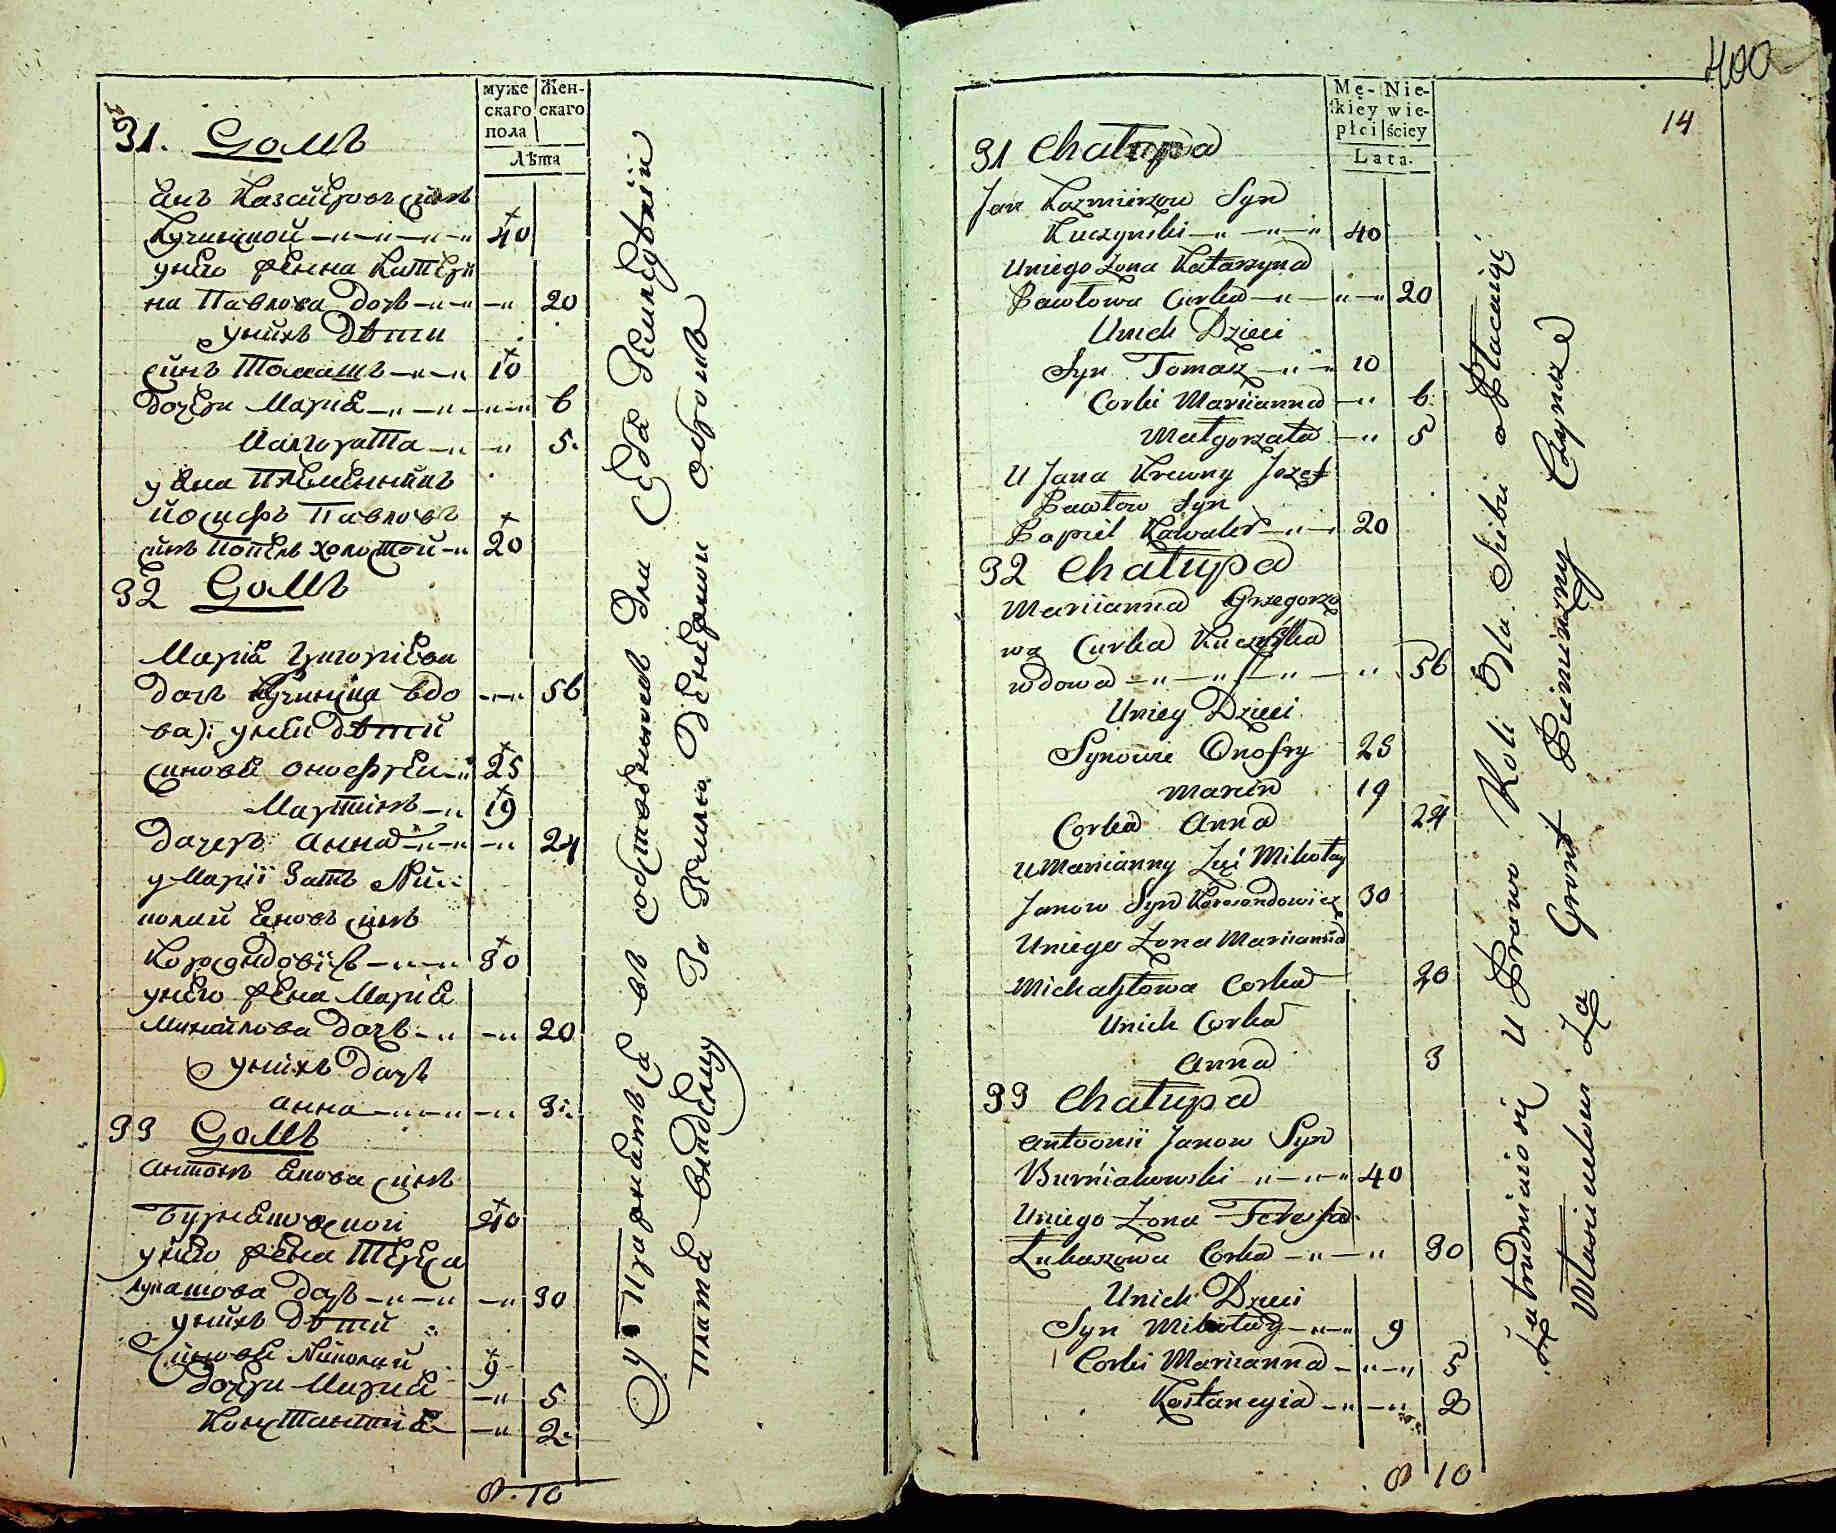 муже
скаго
пола
Жен-
скаго
Лѣта
31. Домъ
Янъ Казимеровъ синъ
Кучинской 40
унего жена Катери
на Павлова дочь 20
унихъ Дѣти
синъ Томашъ 10
Дочери Марія 6
Малгората 5.
у Яна Племенникъ
Йосифъ Павловъ
синъ холостой 20
32 Домъ
Марія Григоріева
дочь вдо 56
ва): унеи дѣти
синовя Оноефреи 25
Мартинъ 19
Дочерь Анна 24
у Маріи Зять Ни:
колаи Яновъ синъ
30
унего жена Марія
Михайлова дочь 20
унихъ Дочь
анна 3:
33 Домъ
Антонъ Янова синъ
40
унего жена Тереса
лукашова дочь 30
унихъ Дѣти
Синовя Николай 9
Дочери Марія 5
Констанція 2.
8. 10
въ собственномъ для себя
плата владельцу За Землю Денежнои оброкъ
400
14
Mę-
kiey
płci
Nie-
wie-
ściey
Lata.
31 Chałupa
Jan Kazmierzow Syn
Kuczynski 40
Uniego Zona Katarzyna
Pawłowa Curka 20
Unich Dzieci
Syn Tomasz 10
Corki Mariianna 6.
Małgorzata 5
U Jana Krewny Jozef
Pawłow Syn
Kawaler 20
32 Chałupa
Mariianna Grzegorzo
wa Curka
wdowa 56
Uniey Dzieci
Synowie Onofry 25
Marcin 19
Corka Anna 24
U Marianny Zięć Mikołay
Janow Syn 30
Uniego Zona Mariianna
Michayłowa Corka 20
Unich Corka
Anna 3
33 Chałupa
Antonii Janow Syn
Burniakowski 40
Uniego Zona Teressa
Łukaszowa Corka 30
Unich Dzieci
Syn Mikołay 9
Corki Mariianna 5
Kostancyia 2
8 10
Zatrudniaio się Uprawo Roli Dla Siebie a Płacenię
Własicielowi Za Gront Pieniezny Czynsz